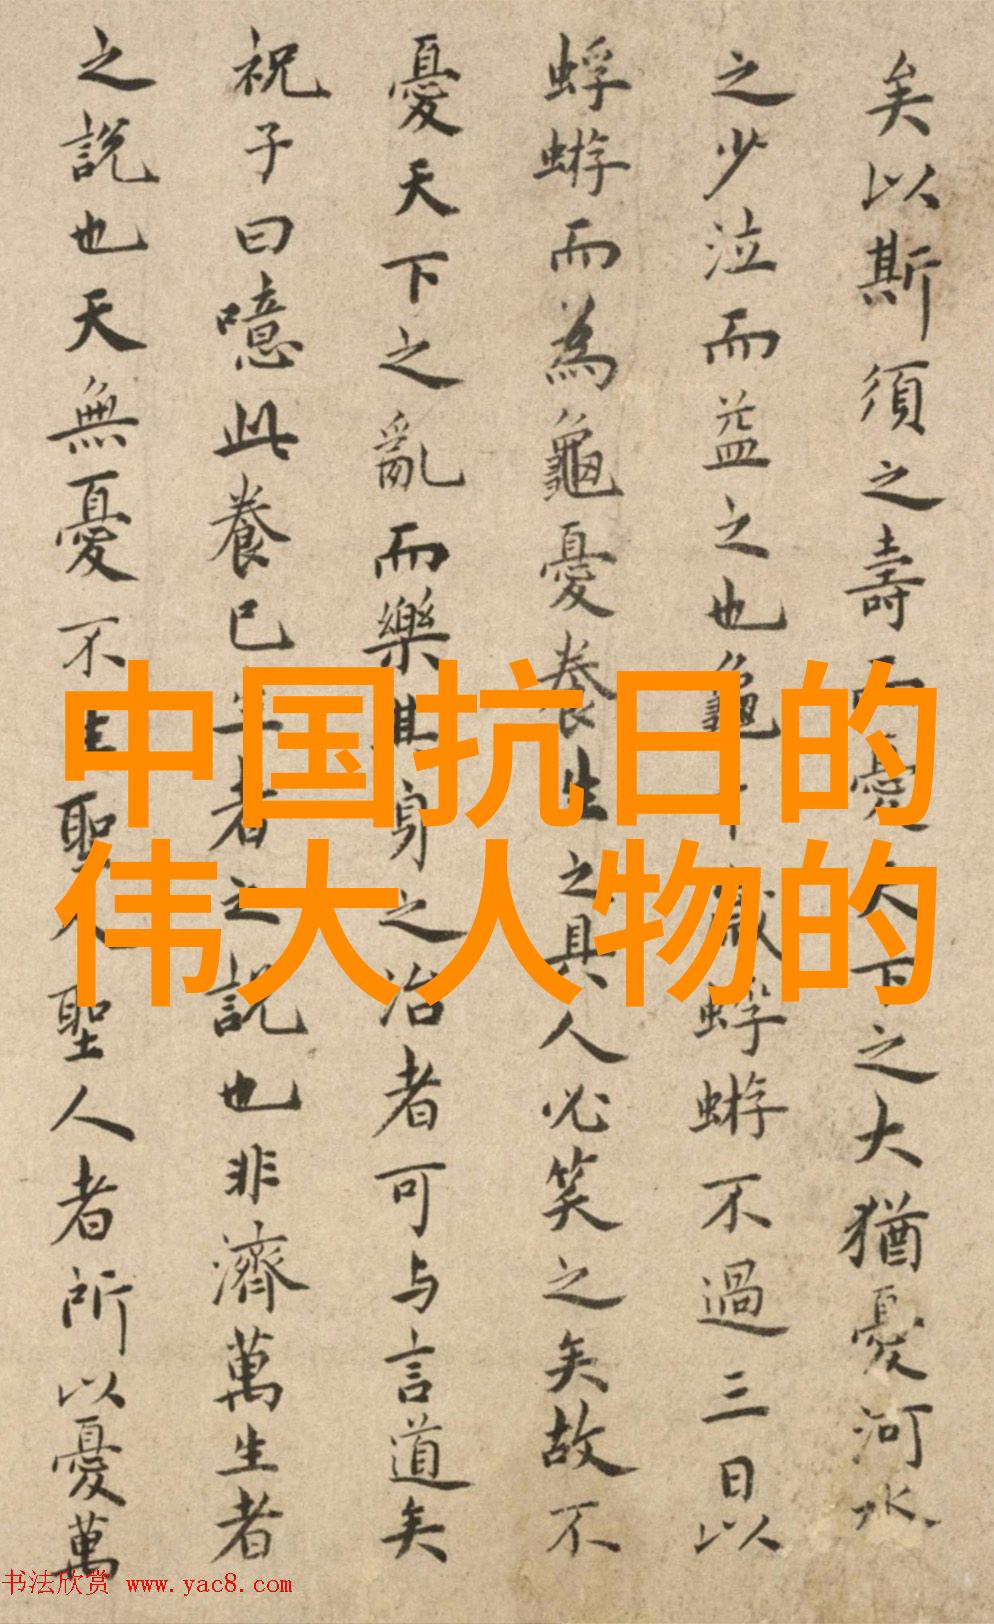 矣以斯須之壽而憂天下之大猶憂河水
之少泣而益之也龜千歲蜉蝣不過三日以
蜉蝣而為龜憂養生之具人必笑之矣故不
憂天下之亂而樂其身之治者可与言道矣
祝子曰噫此養己生者之説也非濟萬生者
之説也天無憂不生聖人聖人者所以憂萬
中国抗日的
伟大人物的
书法欣赏 www.yac8.com